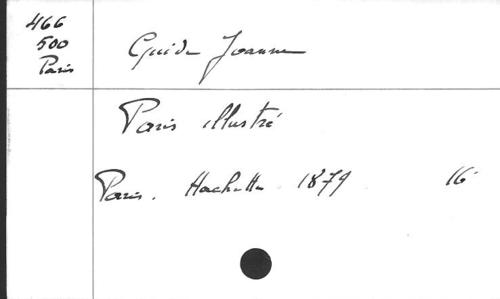 466
500
Paris
Guide Joanne
Paris illustré
Paris. Hachette 1879 16